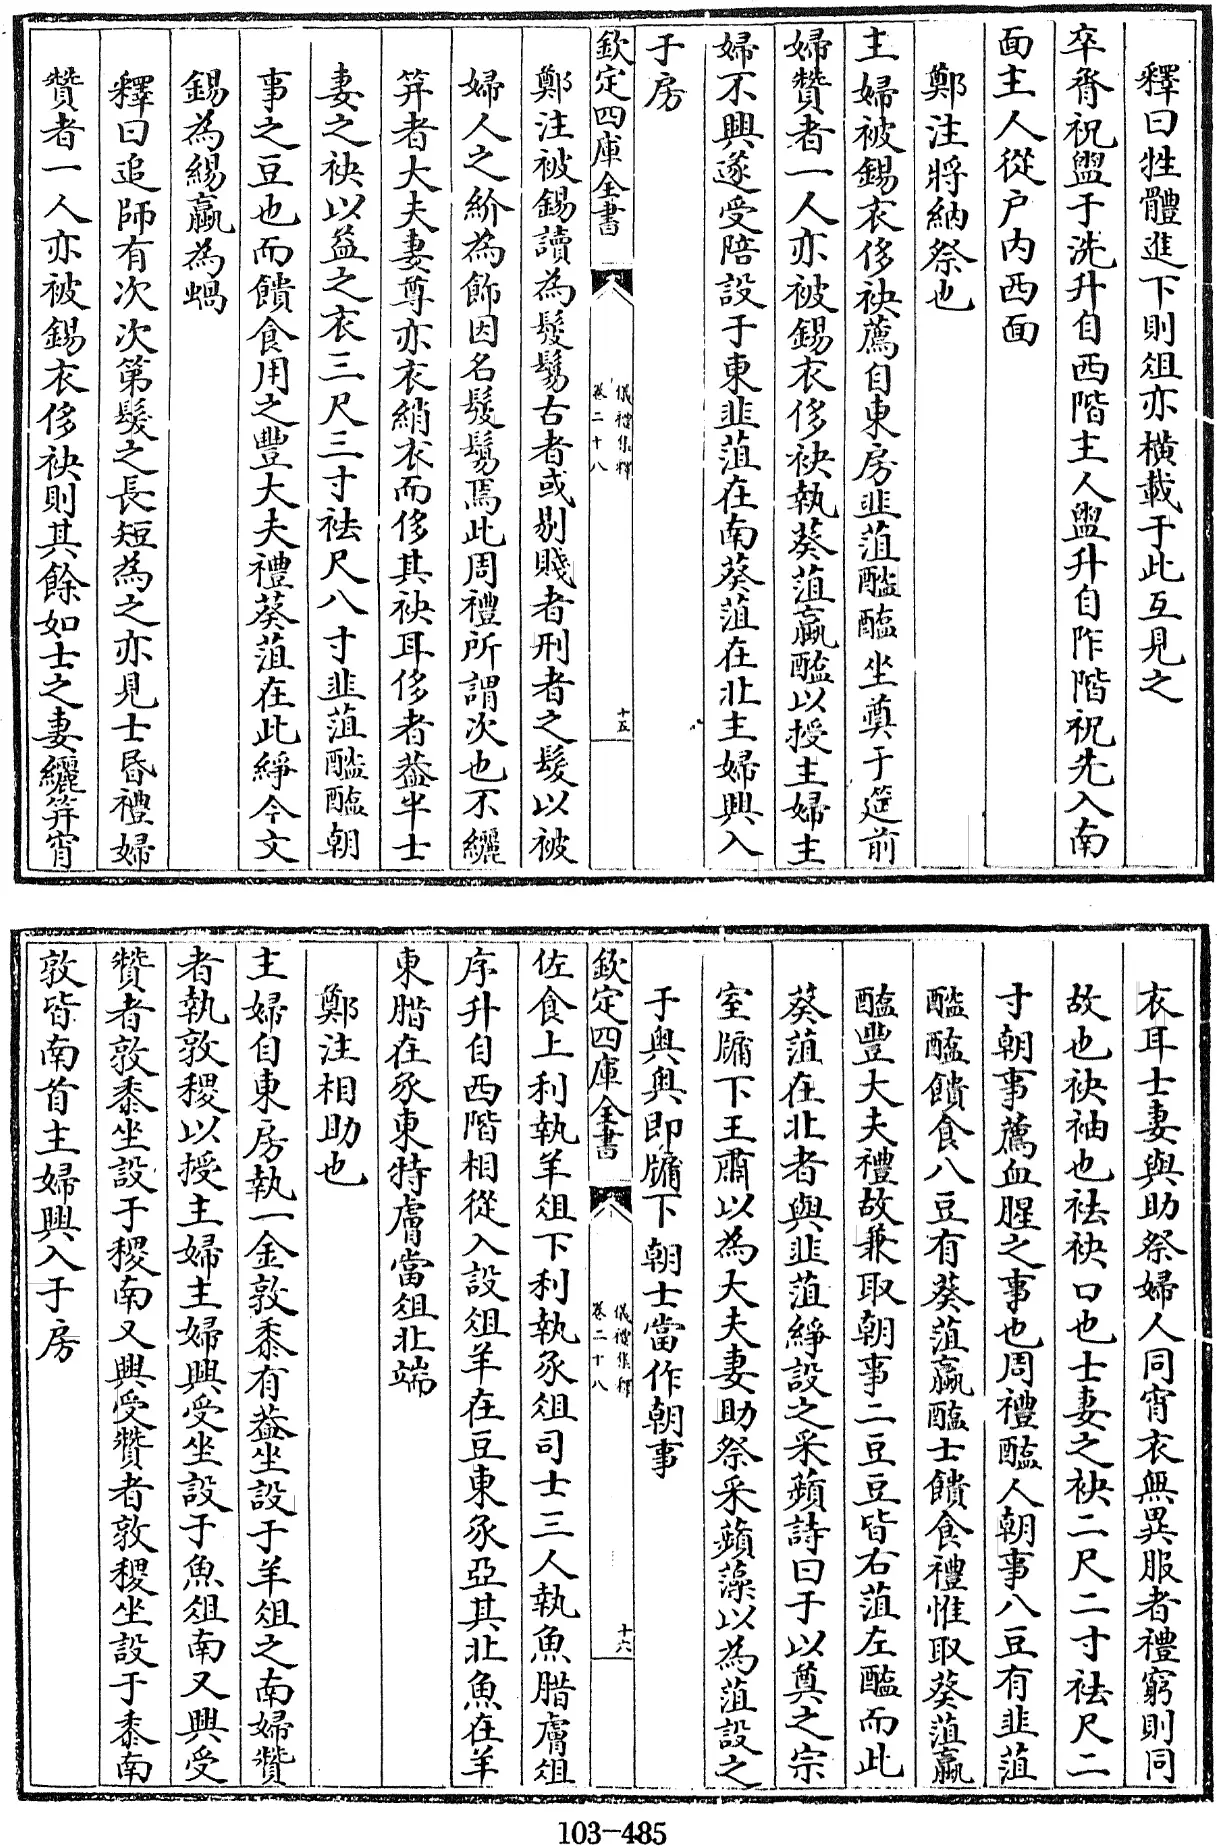 釋曰牲體進下則俎亦橫載于此互見之
卒脀祝盥于洗升自西階主人盥升自阼階祝先入南
面主人從户内西面
鄭注將納祭也
主婦被錫衣侈袂薦自東房韭菹醓醢坐奠于筵前
婦贊者一人亦被錫衣侈袂執葵菹蠃醢以授主婦主
婦不興遂受陪設于東韭菹在南葵菹在北主婦興入
于房
欽定四庫全書
儀禮集釋
卷二十八
十五
鄭注被錫讀為髲鬄古者或剔賤者刑者之髮以被
婦人之紒為飾因名髲鬄焉此周禮所謂次也不纚
笄者大夫妻尊亦衣綃衣而侈其袂耳侈者葢半士
妻之袂以益之衣三尺三寸袪尺八寸韭菹醓醢朝
事之豆也而饋食用之豐大夫禮葵菹在此綪今文
錫為緆蠃為蝸
釋曰追師有次次第髮之長短為之亦見士昏禮婦
贊者一人亦被錫衣侈袂則其餘如士之妻纚笄宵
衣耳士妻與助祭婦人同宵衣無異服者禮窮則同
故也袂袖也袪袂口也士妻之袂二尺二寸袪尺二
寸朝事薦血腥之事也周禮醢人朝事八豆有韭菹
醓醢饋食八豆有葵菹蠃醢士饋食禮惟取葵菹蠃
醢豐大夫禮故兼取朝事二豆豆皆右菹左醢而此
葵菹在北者與韭菹綪設之采蘋詩曰于以奠之宗
室牖下王肅以為大夫妻助祭采蘋藻以為菹設之
于奥奥即牖下 朝士當作朝事
欽定四庫全書
儀禮集釋
卷二十八
十六
佐食上利執羊俎下利執豕俎司士三人執魚腊膚俎
序升自西階相從入設俎羊在豆東豕亞其北魚在羊
東腊在豕東特膚當俎北端
鄭注相助也
主婦自東房執一金敦黍有葢坐設于羊俎之南婦贊
者執敦稷以授主婦主婦興受坐設于魚俎南又興受
贊者敦黍坐設于稷南又興受贊者敦稷坐設于黍南
敦皆南首主婦興入于房
103-485